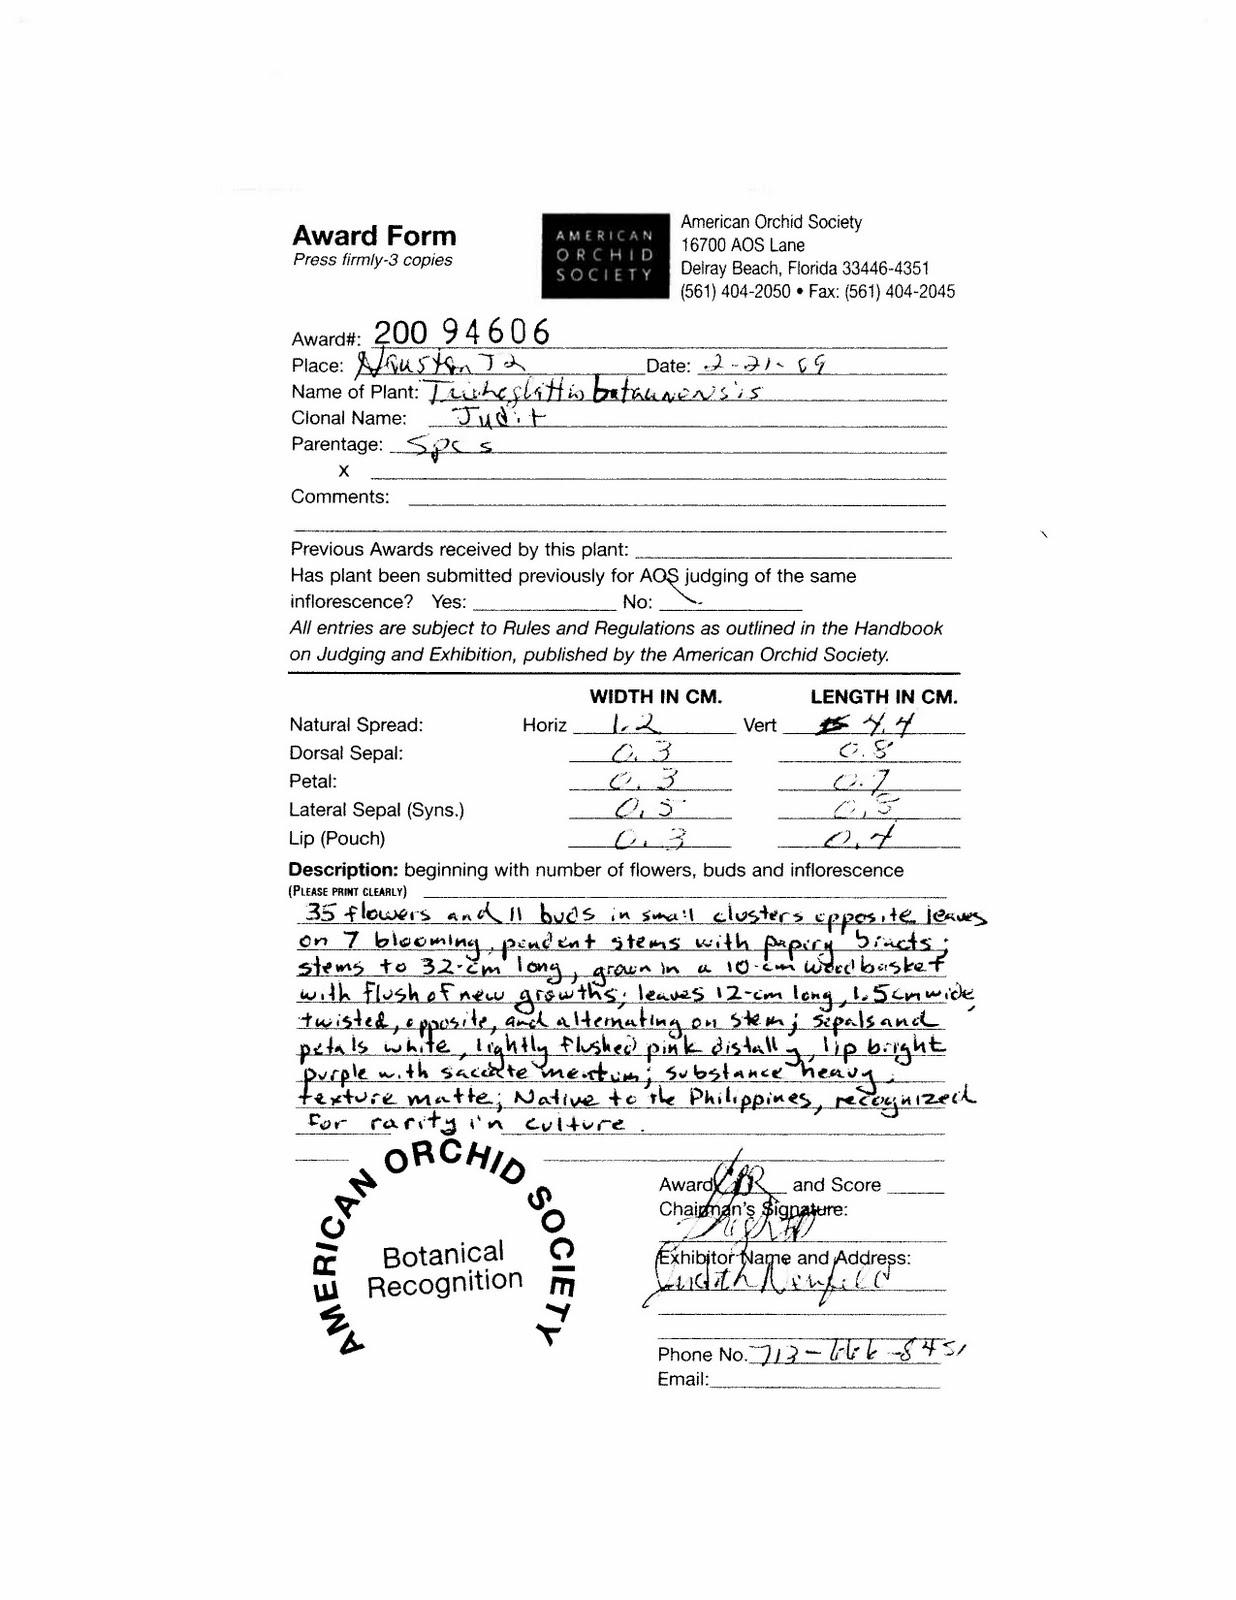 Award Form
Press firmly-3 copies
AMERICAN
ORCHID
SOCIETY
American Orchid Society
16700 AOS Lane
Delray Beach, Florida 33446-4351
(561) 404-2050 • Fax: (561) 404-2045
Award#: 200 94606
Place: Houston Date: 2-21-09
Name of Plant: bataanensis
Clonal Name: Judit
Parentage: Spcs
X
Comments:
Previous Awards received by this plant:
Has plant been submitted previously for AOS judging of the same
inflorescence? Yes: No:
All entries are subject to Rules and Regulations as outlined in the Handbook
on Judging and Exhibition, published by the American Orchid Society.
WIDTH IN CM. LENGTH IN CM.
Natural Spread: Horiz 1.2 Vert 4.4
Dorsal Sepal: 0.3 0.8
Petal: 0.3 0.7
Lateral Sepal (Syns.) 0.5 0.8
Lip (Pouch) 0.3 0.4
Description: beginning with number of flowers, buds and inflorescence
(PLEASE PRINT CLEARLY)
35 flowers and 11 buds in small clusters opposite leaves
on 7 blooming, pendent stems with papery bracts;
stems to 32-cm long, grown in a 10-cm wood basket
with flush of new growths; leaves 12-cm long, 1.5cm wide,
twisted, opposite, and alternating on stem; sepals and
petals white, lightly flushed pink distally, lip bright
purple with saccate mentum; substance heavy,
texture matte; Native to the Philippines, recognized
for rarity in culture.
AMERICAN ORCHID SOCIETY
Botanical
Recognition
Award CBR and Score
Chairman's Signature:
Exhibitor Name and Address:
Judith Neufeld
Phone No. 713-666-8451
Email: